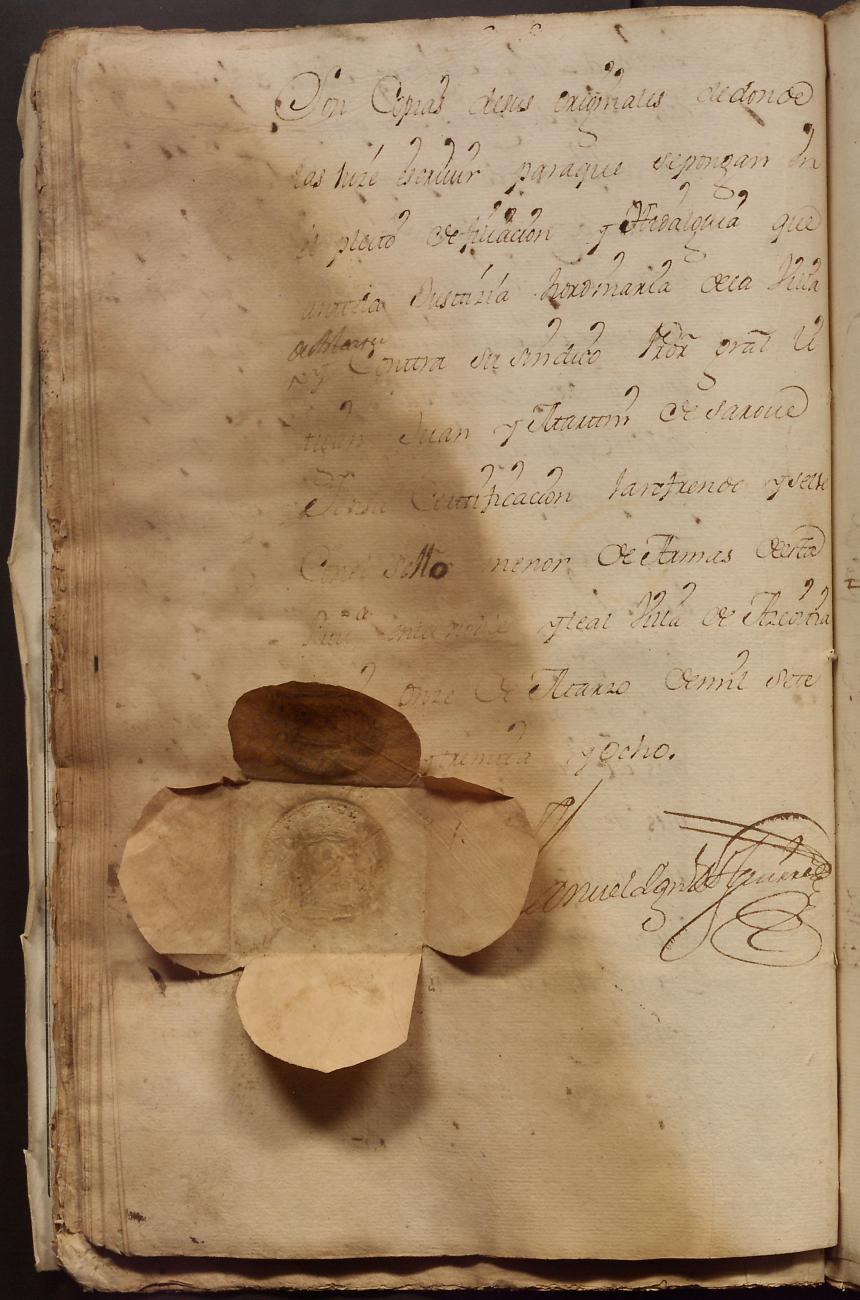 Son Copias desus originales dedonde
las hize escriuir paraque sepongan en
el pleito defiliacion y Hidalguia que
ante la Justizia hordinaria dela Villa
Contra su sindico Pror gral li
tigan Juan y Martin de Saroue
Certificacion larefrende yselle
Conel sello menor de Armas deesta
mui noble yleal Villa de Azcoitia
onze de Marzo demil sete
ytreinta yocho.
Manuel Ignº de Aguirre